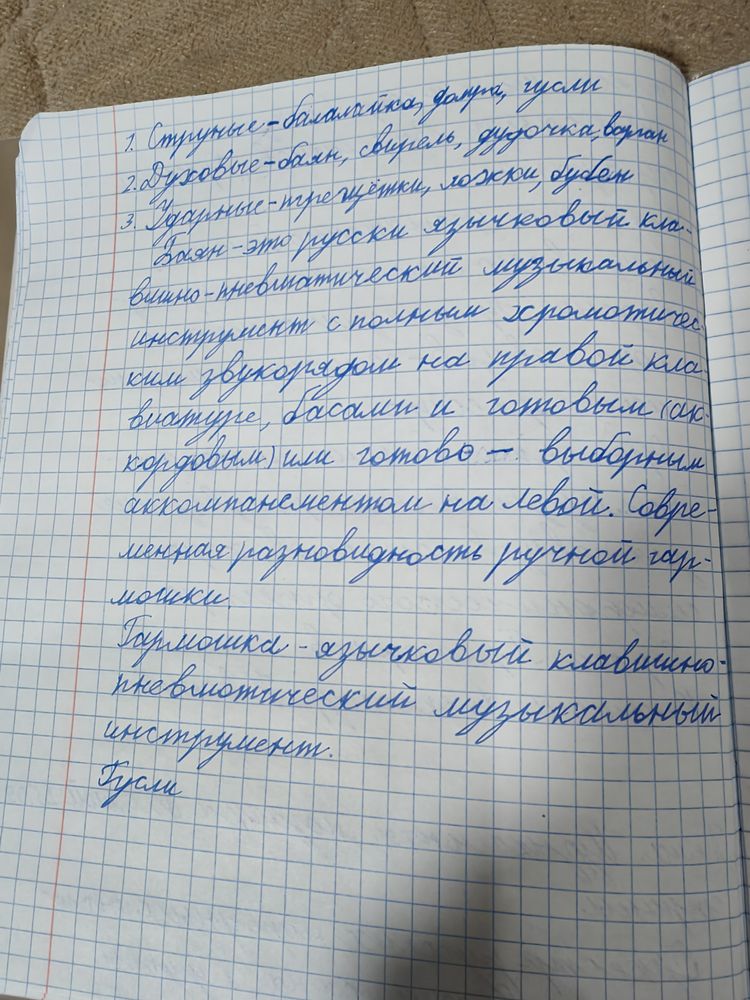 1. Струные-балалайка, домра, гусли
2. Духовые-баян, свирель, дудочка, варган
3. Ударные-трещётки, ложки, бубен
Баян-это русски язычковый кла-
вишно-пневматический музыкальный
инструмент с полным хроматичес-
ким звукорядом на правой кла-
виатуре, басами и готовым (ак-
кордовым) или готово-выборным
аккомпанементом на левой. Совре-
менная разновидность ручной гар-
мошки.
Гармошка-язычковый клавишно-
пневмотический музыкальный
инструмент.
Гусли